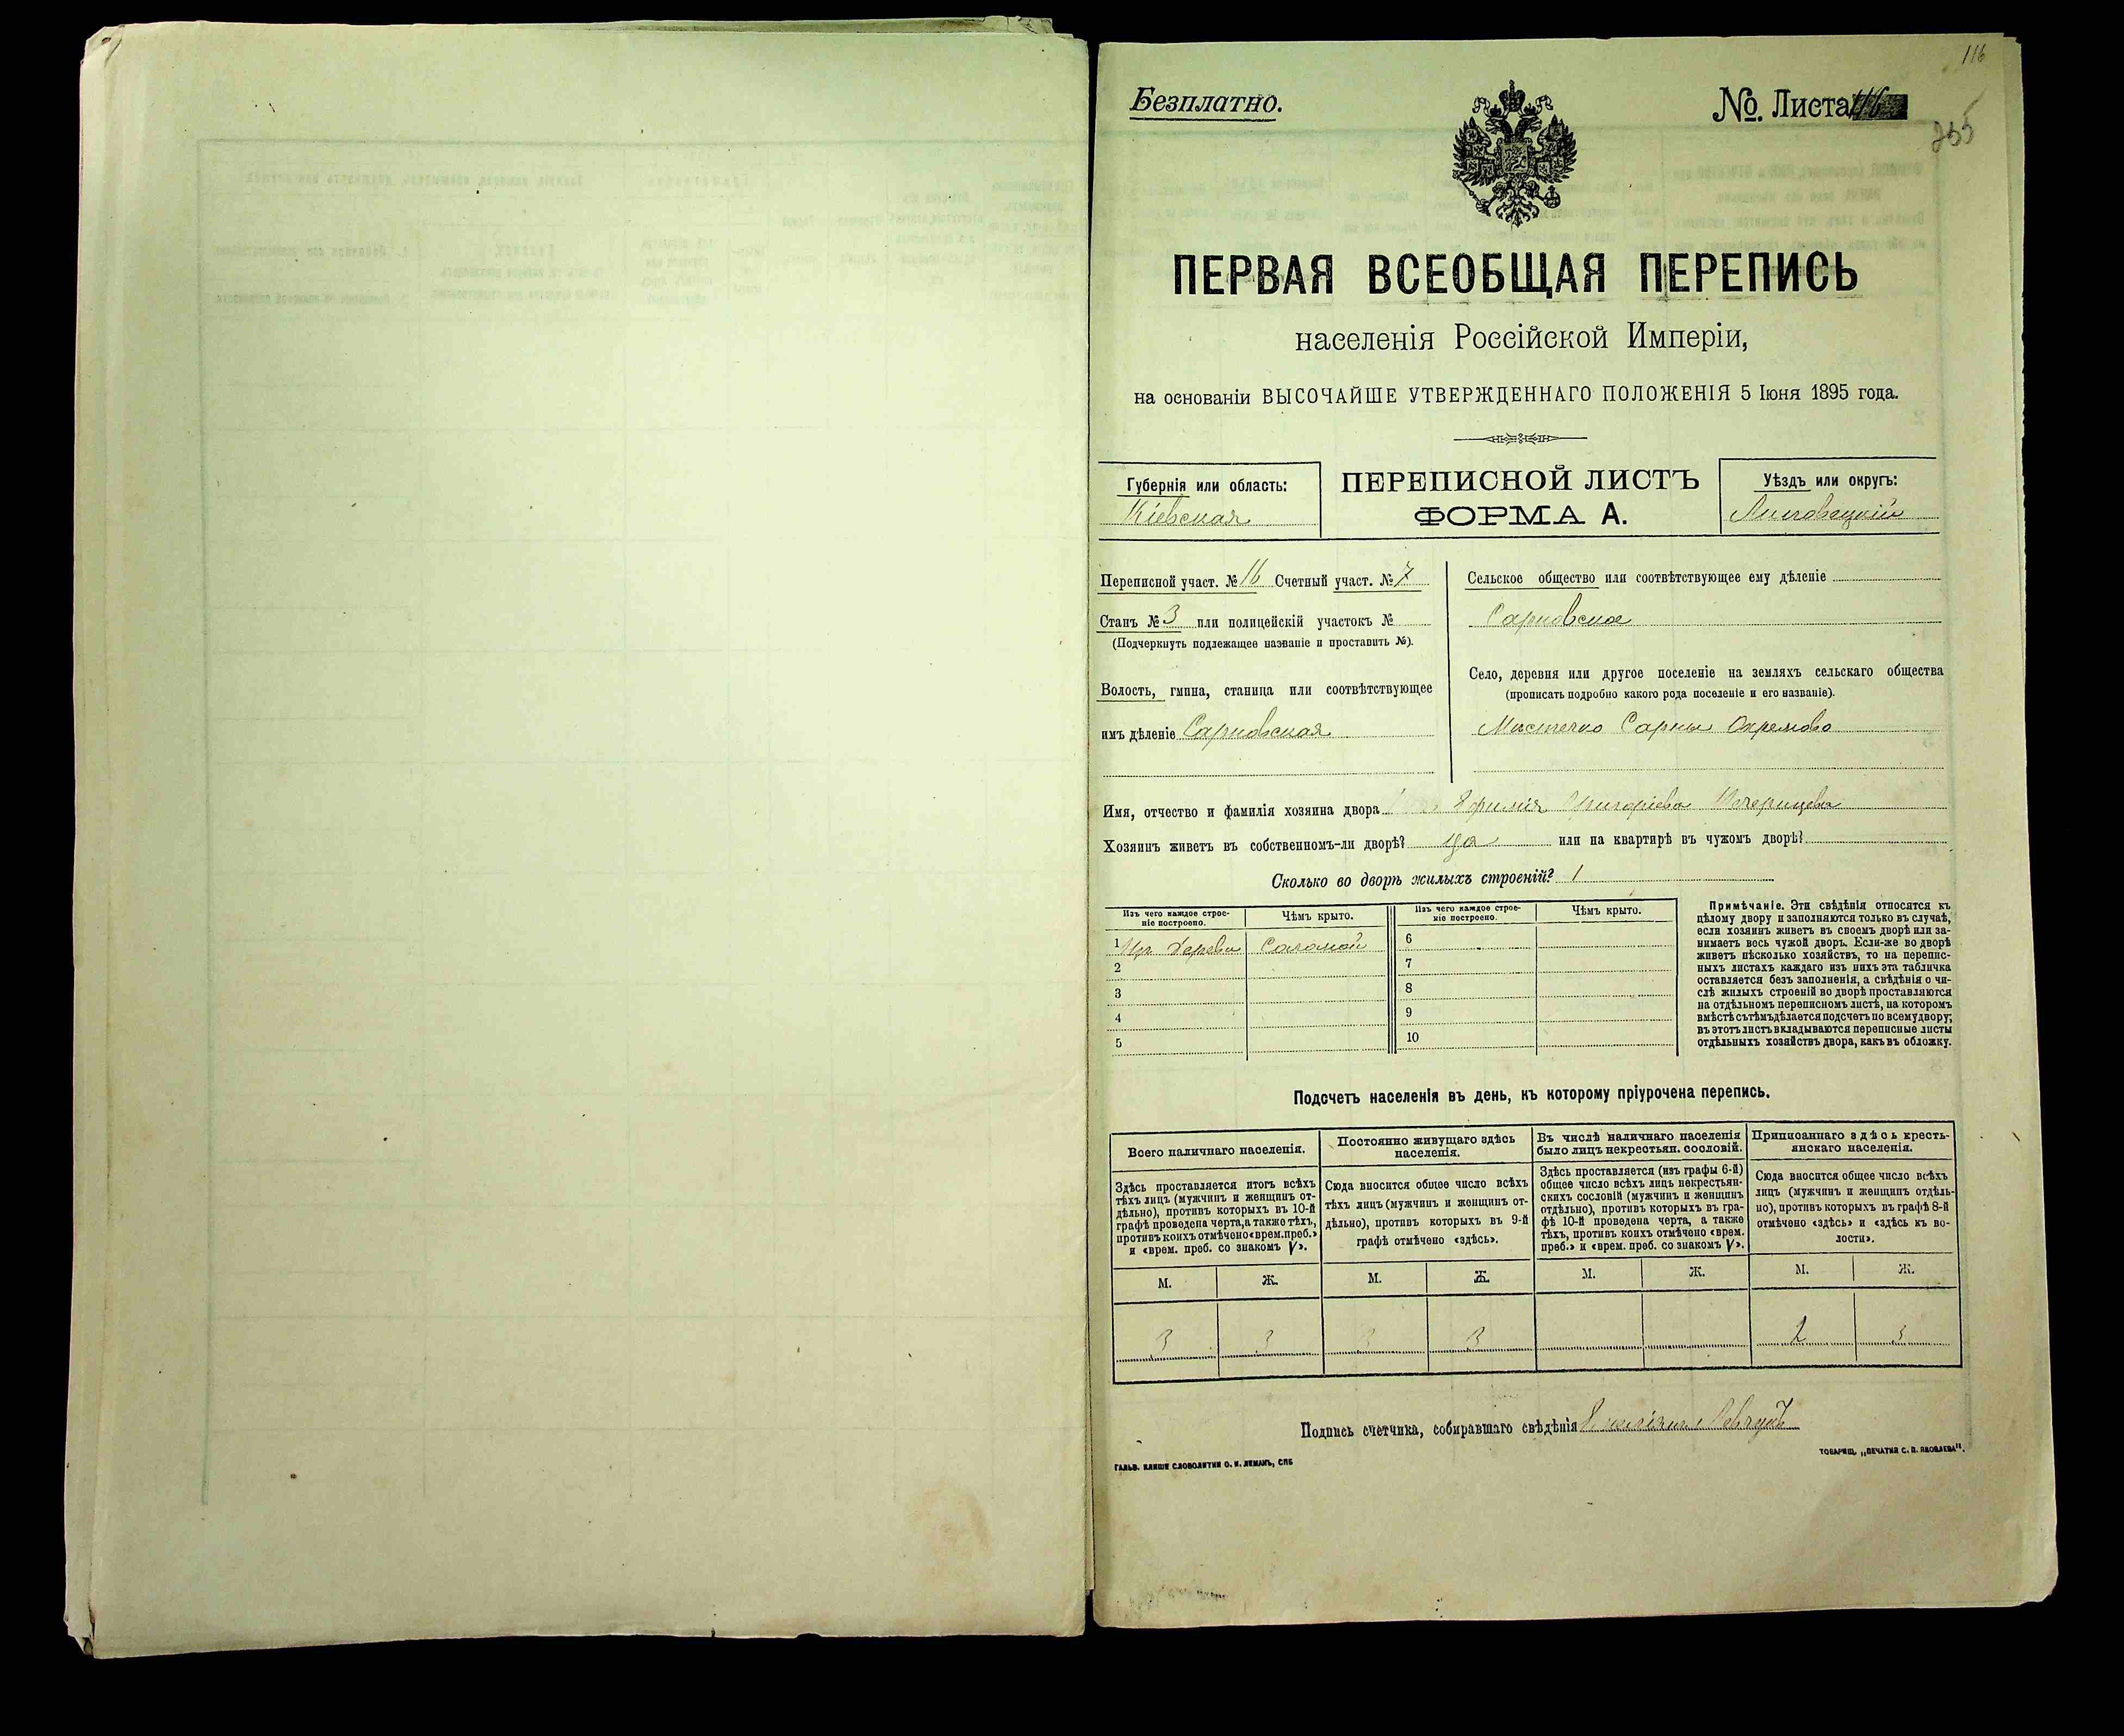 116
Безплатно.
№ Листа 116
255
ПЕРВАЯ ВСЕОБЩАЯ ПЕРЕПИСЬ
населенія Россійской Имперіи,
на основаніи ВЫСОЧАЙШЕ УТВЕРЖДЕННАГО ПОЛОЖЕНІЯ 5 Іюня 1895 года.
Губернія или область:
Кіевская
ПЕРЕПИСНОЙ ЛИСТЪ
ФОРМА А.
Уѣздъ или округъ:
Липовецкій
Переписной участ. № 16 Счетный участ. № 7
Станъ № 3 или полицейскій участокъ №
(Подчеркнуть подлежащее названіе и проставить №).
Волость, гмина, станица или соотвѣтствующее
имъ дѣленіе Сарновская
Сельское общество или соотвѣтствующее ему дѣленіе
Сарновское
Село, деревня или другое поселеніе на земляхъ сельскаго общества
(прописать подробно какого рода поселеніе и его названіе).
Мистечко Сарны
Имя, отчество и фамилія хозяина двора Григоріева
Хозяинъ живетъ въ собственномъ-ли дворѣ? да или на квартирѣ въ чужомъ дворѣ?
Сколько во дворѣ жилыхъ строеній? 1
Изъ чего каждое строе-
ніе построено.
Чѣмъ крыто.
1 Изъ дерева Соломой
2
3
4
5
Изъ чего каждое строе-
ніе построено.
Чѣмъ крыто.
6
7
8
9
10
Примѣчаніе. Эти свѣдѣнія относятся къ
цѣлому двору и заполняются только въ случаѣ,
если хозяинъ живетъ въ своемъ дворѣ или за-
нимаетъ весь чужой дворъ. Если-же во дворѣ
живетъ нѣсколько хозяйствъ, то на перепис-
ныхъ листахъ каждаго изъ нихъ эта табличка
оставляется безъ заполненія, а свѣдѣнія о чи-
слѣ жилыхъ строеній во дворѣ проставляются
на отдѣльномъ переписномъ листѣ, на которомъ
вмѣстѣ съ тѣмъ дѣлается подсчетъ по всему двору;
въ этотъ листъ вкладываются переписные листы
отдѣльныхъ хозяйствъ двора, какъ въ обложку.
Подсчетъ населенія въ день, къ которому пріурочена перепись.
Всего наличнаго населенія.
Здѣсь проставляется итогъ всѣхъ
тѣхъ лицъ (мужчинъ и женщинъ от-
дѣльно), противъ которыхъ въ 10-й
графѣ проведена черта, а также тѣхъ,
противъ коихъ отмѣчено «врем. преб.»
и «врем. преб. со знакомъ V».
М. Ж.
3 3
Постоянно живущаго здѣсь
населенія.
Сюда вносится общее число всѣхъ
тѣхъ лицъ (мужчинъ и женщинъ от-
дѣльно), противъ которыхъ въ 9-й
графѣ отмѣчено «здѣсь».
М. Ж.
3 3
Въ числѣ наличнаго населенія
было лицъ некрестьян. сословій.
Здѣсь проставляется (изъ графы 6-й)
общее число всѣхъ лицъ некрестьян-
скихъ сословій (мужчинъ и женщинъ
отдѣльно), противъ которыхъ въ гра-
фѣ 10-й проведена черта, а также
тѣхъ, противъ коихъ отмѣчено «врем.
преб.» и «врем. преб. со знакомъ V».
М. Ж.
Приписаннаго здѣсь кресть-
янскаго населенія.
Сюда вносится общее число всѣхъ
лицъ (мужчинъ и женщинъ отдѣль-
но), противъ которыхъ въ графѣ 8-й
отмѣчено «здѣсь» и «здѣсь къ во-
лости».
М. Ж.
2 3
Подпись счетчика, собиравшаго свѣдѣнія
ГАЛЬВ. КЛИШЕ СЛОВОЛИТНИ О. И. ЛЕМАНЪ, СПБ
ТОВАРИЩ. „ПЕЧАТНЯ С. П. ЯКОВЛЕВА“.